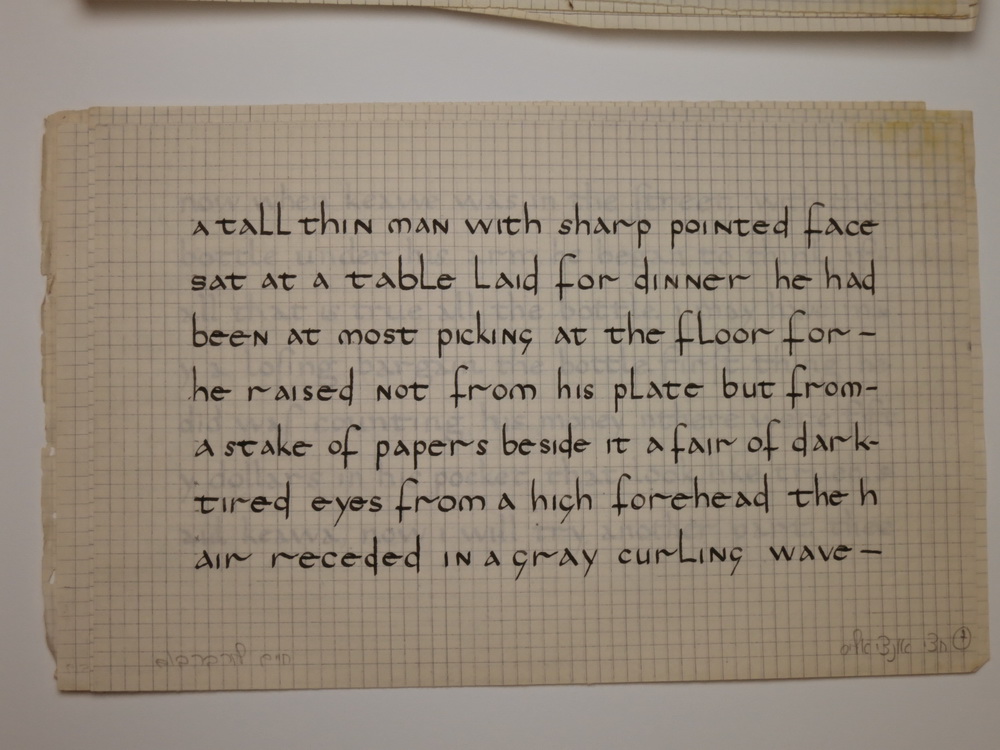 a tall thin man with sharp pointed face
sat at a table laid for dinner he had
been at most picking at the floor for –
he raised not from his plate but from-
a stake of papers beside it a fair of dark-
tired eyes from a high forehead the h
air receded in a gray curling wave –